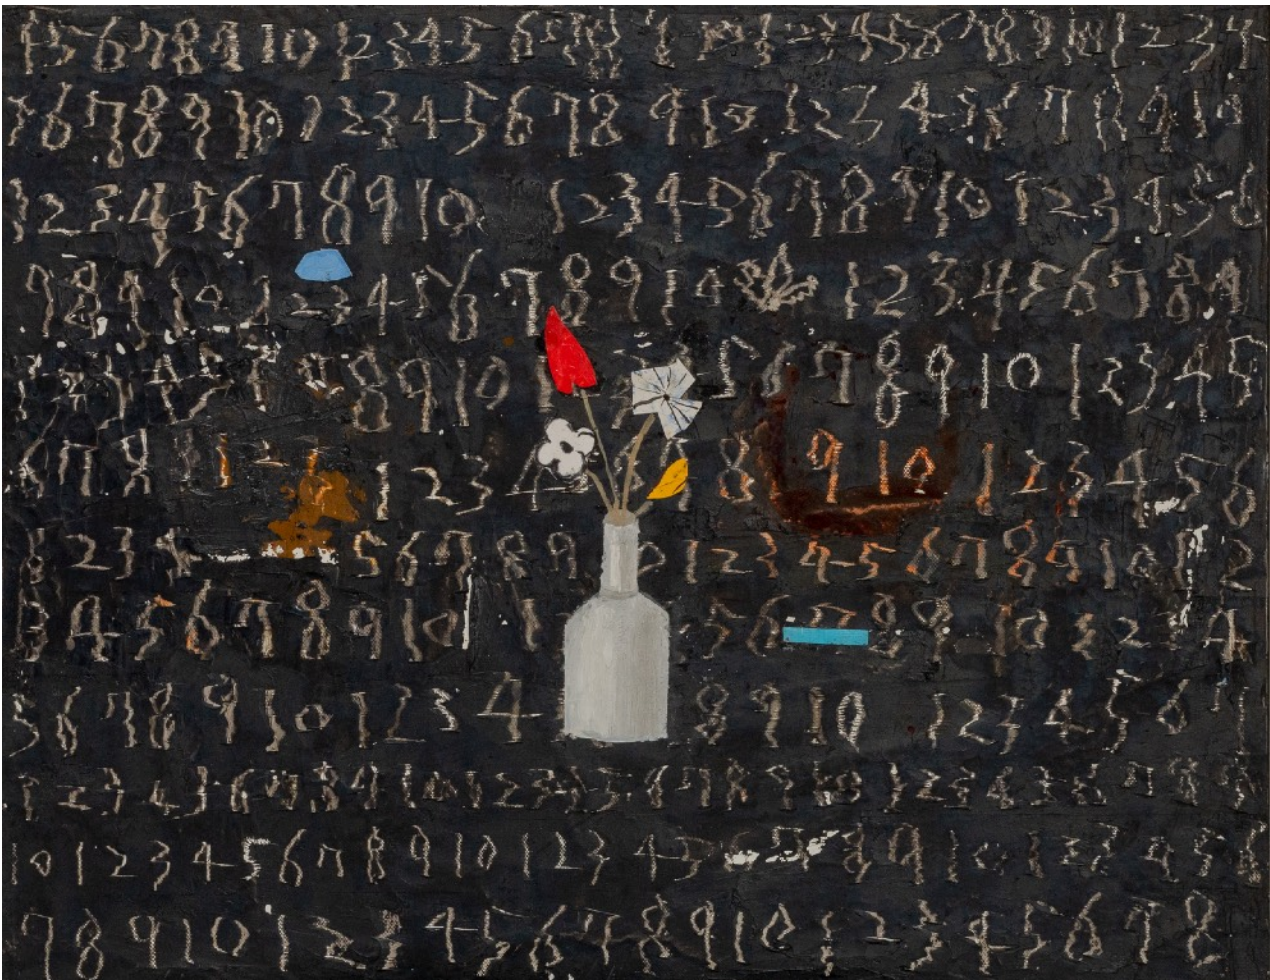 5 6 7 8 9 10 1 2 3 4 5 6 7 8 9 1 2 3 4 5 6 7 8 9 10 1 2 3 4
5 6 7 8 9 10 1 2 3 4 5 6 7 8 9 10 1 2 3 4 5 6 7 8 9 10
1 2 3 4 5 6 7 8 9 10 1 2 3 4 5 6 7 8 9 10 1 2 3 4 5 6
7 8 9 10 1 2 3 4 5 6 7 8 9 10 1 2 3 4 5 6 7 8 9
4 7 8 9 10 1 5 6 7 8 9 10 1 2 3 4 5
6 7 8 1 2 1 2 3 4 8 9 10 1 2 3 4 5 6
2 3 4 5 6 7 8 9 0 1 2 3 4 5 6 7 8 9 10 2
3 4 5 6 7 8 9 10 1 5 6 7 8 9 10 3 2 4
5 6 7 8 9 10 1 2 3 4 8 9 10 1 2 3 4 5 6
1 2 3 4 5 6 7 8 9 10 1 2 3 4 5 6 7 8 9 10 1 2 3 4 5 6 7 8
10 1 2 3 4 5 6 7 8 9 10 1 2 3 4 5 8 9 10 1 2 3 4 5 6
7 8 9 10 1 2 3 4 5 6 7 8 9 10 1 2 3 4 5 6 7 8